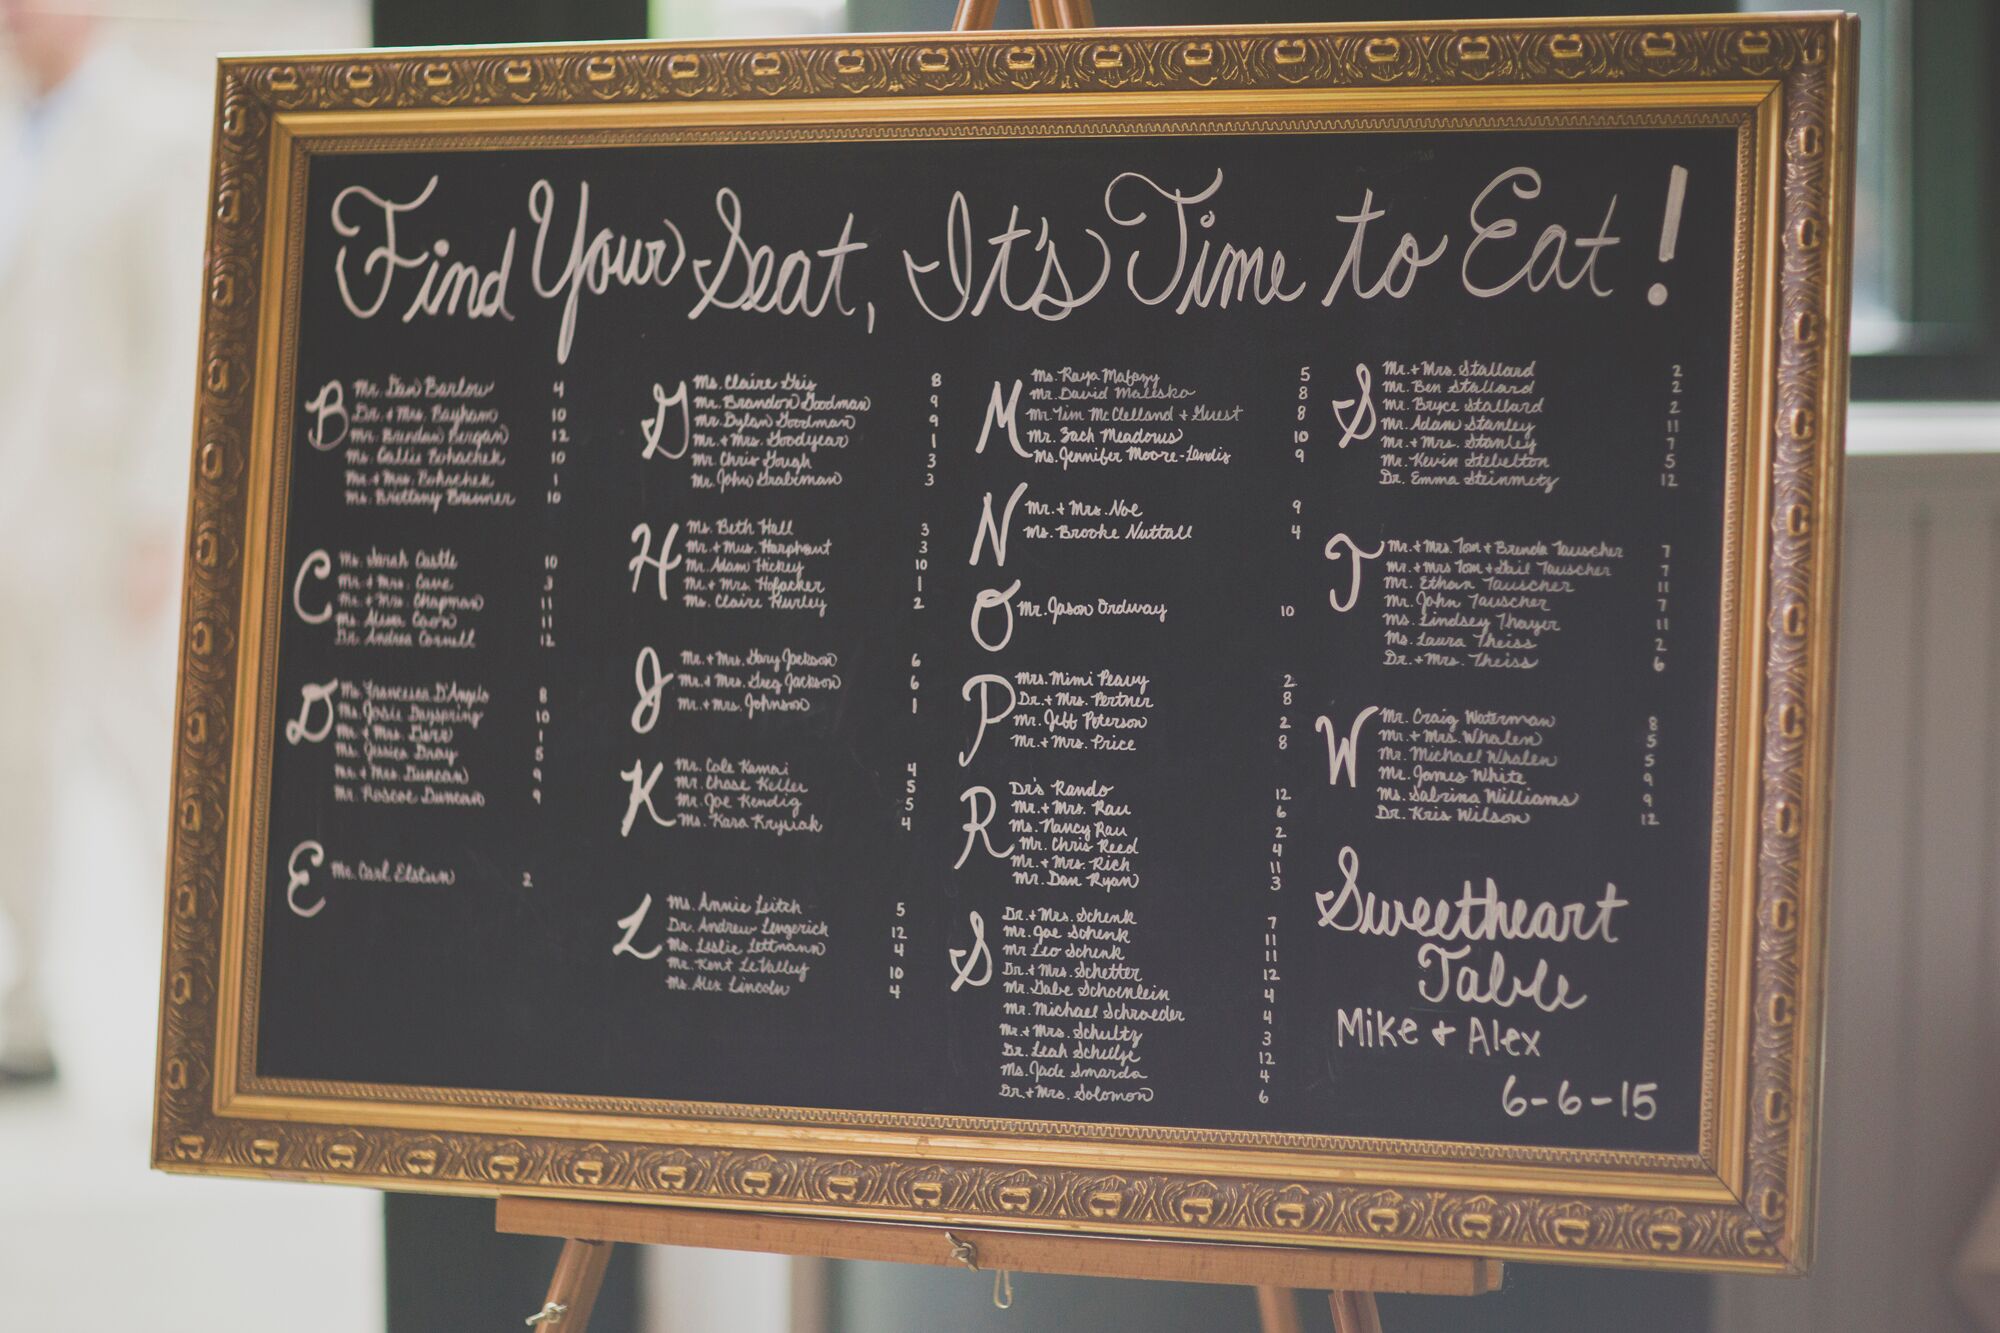 Find Your Seat, It's Time to Eat!
B
Mr. Dan Barlow 4
Dr. + Mrs. Basham 10
Mr. Brendan Bergan 12
Ms. Callie Bohachek 10
Mr. + Mrs. Bohachek 1
Ms. Brittany Brunner 10
C
Ms. Sarah Castle 10
Mr. + Mrs. Cave 3
Mr. + Mrs. Chapman 11
Ms. Alisa Caon 11
Dr. Andrea Cornell 12
D
Ms. Francesca D'Angelo 8
Ms. Josie Dayspring 10
Mr. + Mrs. Dere 1
Ms. Jessica Dray 5
Mr. + Mrs. Duncan 9
Mr. Roscoe Duncan 9
E
Mr. Carl Elstun 2
G
Ms. Claire Geis 8
Mr. Brandon Goodman 9
Mr. Dylan Goodman 9
Mr. + Mrs. Goodyear 1
Mr. Chris Gough 3
Mr. John Grabeman 3
H
Ms. Beth Hall 3
Mr. + Mrs. Harphant 3
Mr. Adam Hickey 10
Mr. + Mrs. Hofacker 1
Ms. Claire Hurley 2
J
Mr. + Mrs. Gary Jackson 6
Mr. + Mrs. Greg Jackson 6
Mr. + Mrs. Johnson 1
K
Mr. Cole Kamai 4
Mr. Chase Keller 5
Mr. Joe Kendig 5
Ms. Kara Krysiak 4
L
Ms. Annie Leitch 5
Dr. Andrew Lengerich 12
Ms. Leslie Lettmann 4
Mr. Kent LeValley 10
Ms. Alex Lincoln 4
M
Ms. Raya Mafazy 5
Mr. David Malesko 8
Mr. Tim McClelland + Guest 8
Mr. Zach Meadows 10
Ms. Jennifer Moore-Landis 9
N
Mr. + Mrs. Noe 9
Ms. Brooke Nuttall 4
O
Mr. Jason Ordway 10
P
Mrs. Mimi Peavy 2
Dr. + Mrs. Pertner 8
Mr. Jeff Peterson 2
Mr. + Mrs. Price 8
R
Dr's Rando 12
Mr. + Mrs. Rau 6
Ms. Nancy Rau 2
Mr. Chris Reed 4
Mr. + Mrs. Rich 11
Mr. Dan Ryan 3
S
Dr. + Mrs. Schenk 7
Mr. Joe Schenk 11
Mr Leo Schenk 11
Dr. + Mrs. Schetter 12
Mr. Gabe Schoenlein 4
Mr. Michael Schroeder 4
Mr. + Mrs. Schultz 3
Dr. Leah Schulze 12
Ms. Jade Smarda 4
Dr. + Mrs. Solomon 6
S
Mr. + Mrs. Stallard 2
Mr. Ben Stallard 2
Mr. Bryce Stallard 2
Mr. Adam Stanley 11
Mr. + Mrs. Stanley 7
Mr. Kevin Stebelton 5
Dr. Emma Steinmetz 12
T
Mr. + Mrs. Tom + Brenda Tauscher 7
Mr. + Mrs Tom + Gail Tauscher 7
Mr. Ethan Tauscher 11
Mr. John Tauscher 7
Ms. Lindsey Thayer 11
Ms. Laura Theiss 2
Dr. + Mrs. Theiss 6
W
Mr. Craig Waterman 8
Mr. + Mrs. Whalen 5
Mr. Michael Whalen 5
Mr. James White 9
Ms. Sabrina Williams 9
Dr. Kris Wilson 12
Sweetheart
Table
Mike + Alex
6-6-15